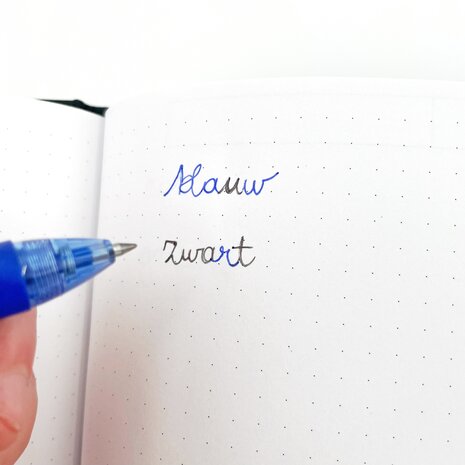 blauw
zwart